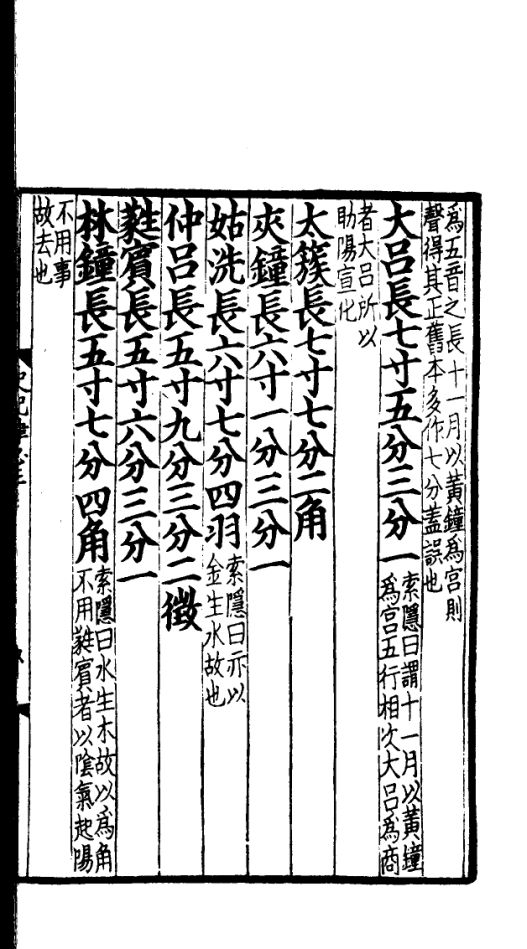 爲五音之長十一月以黃鐘爲宮則
聲得其正舊本多作七分蓋誤也
大呂長七寸五分三分一
索隱曰謂十一月以黃鐘
爲宮五行相次大呂爲商
者大呂所以
助陽宣化
太簇長七寸七分二角
夾鐘長六寸一分三分一
姑洗長六寸七分四羽
索隱曰亦以
金生水故也
仲呂長五寸九分三分二徵
蕤賓長五寸六分三分一
林鐘長五寸七分四角
索隱曰水生木故以爲角
不用蕤賓者以陰氣起陽
不用事
故去也